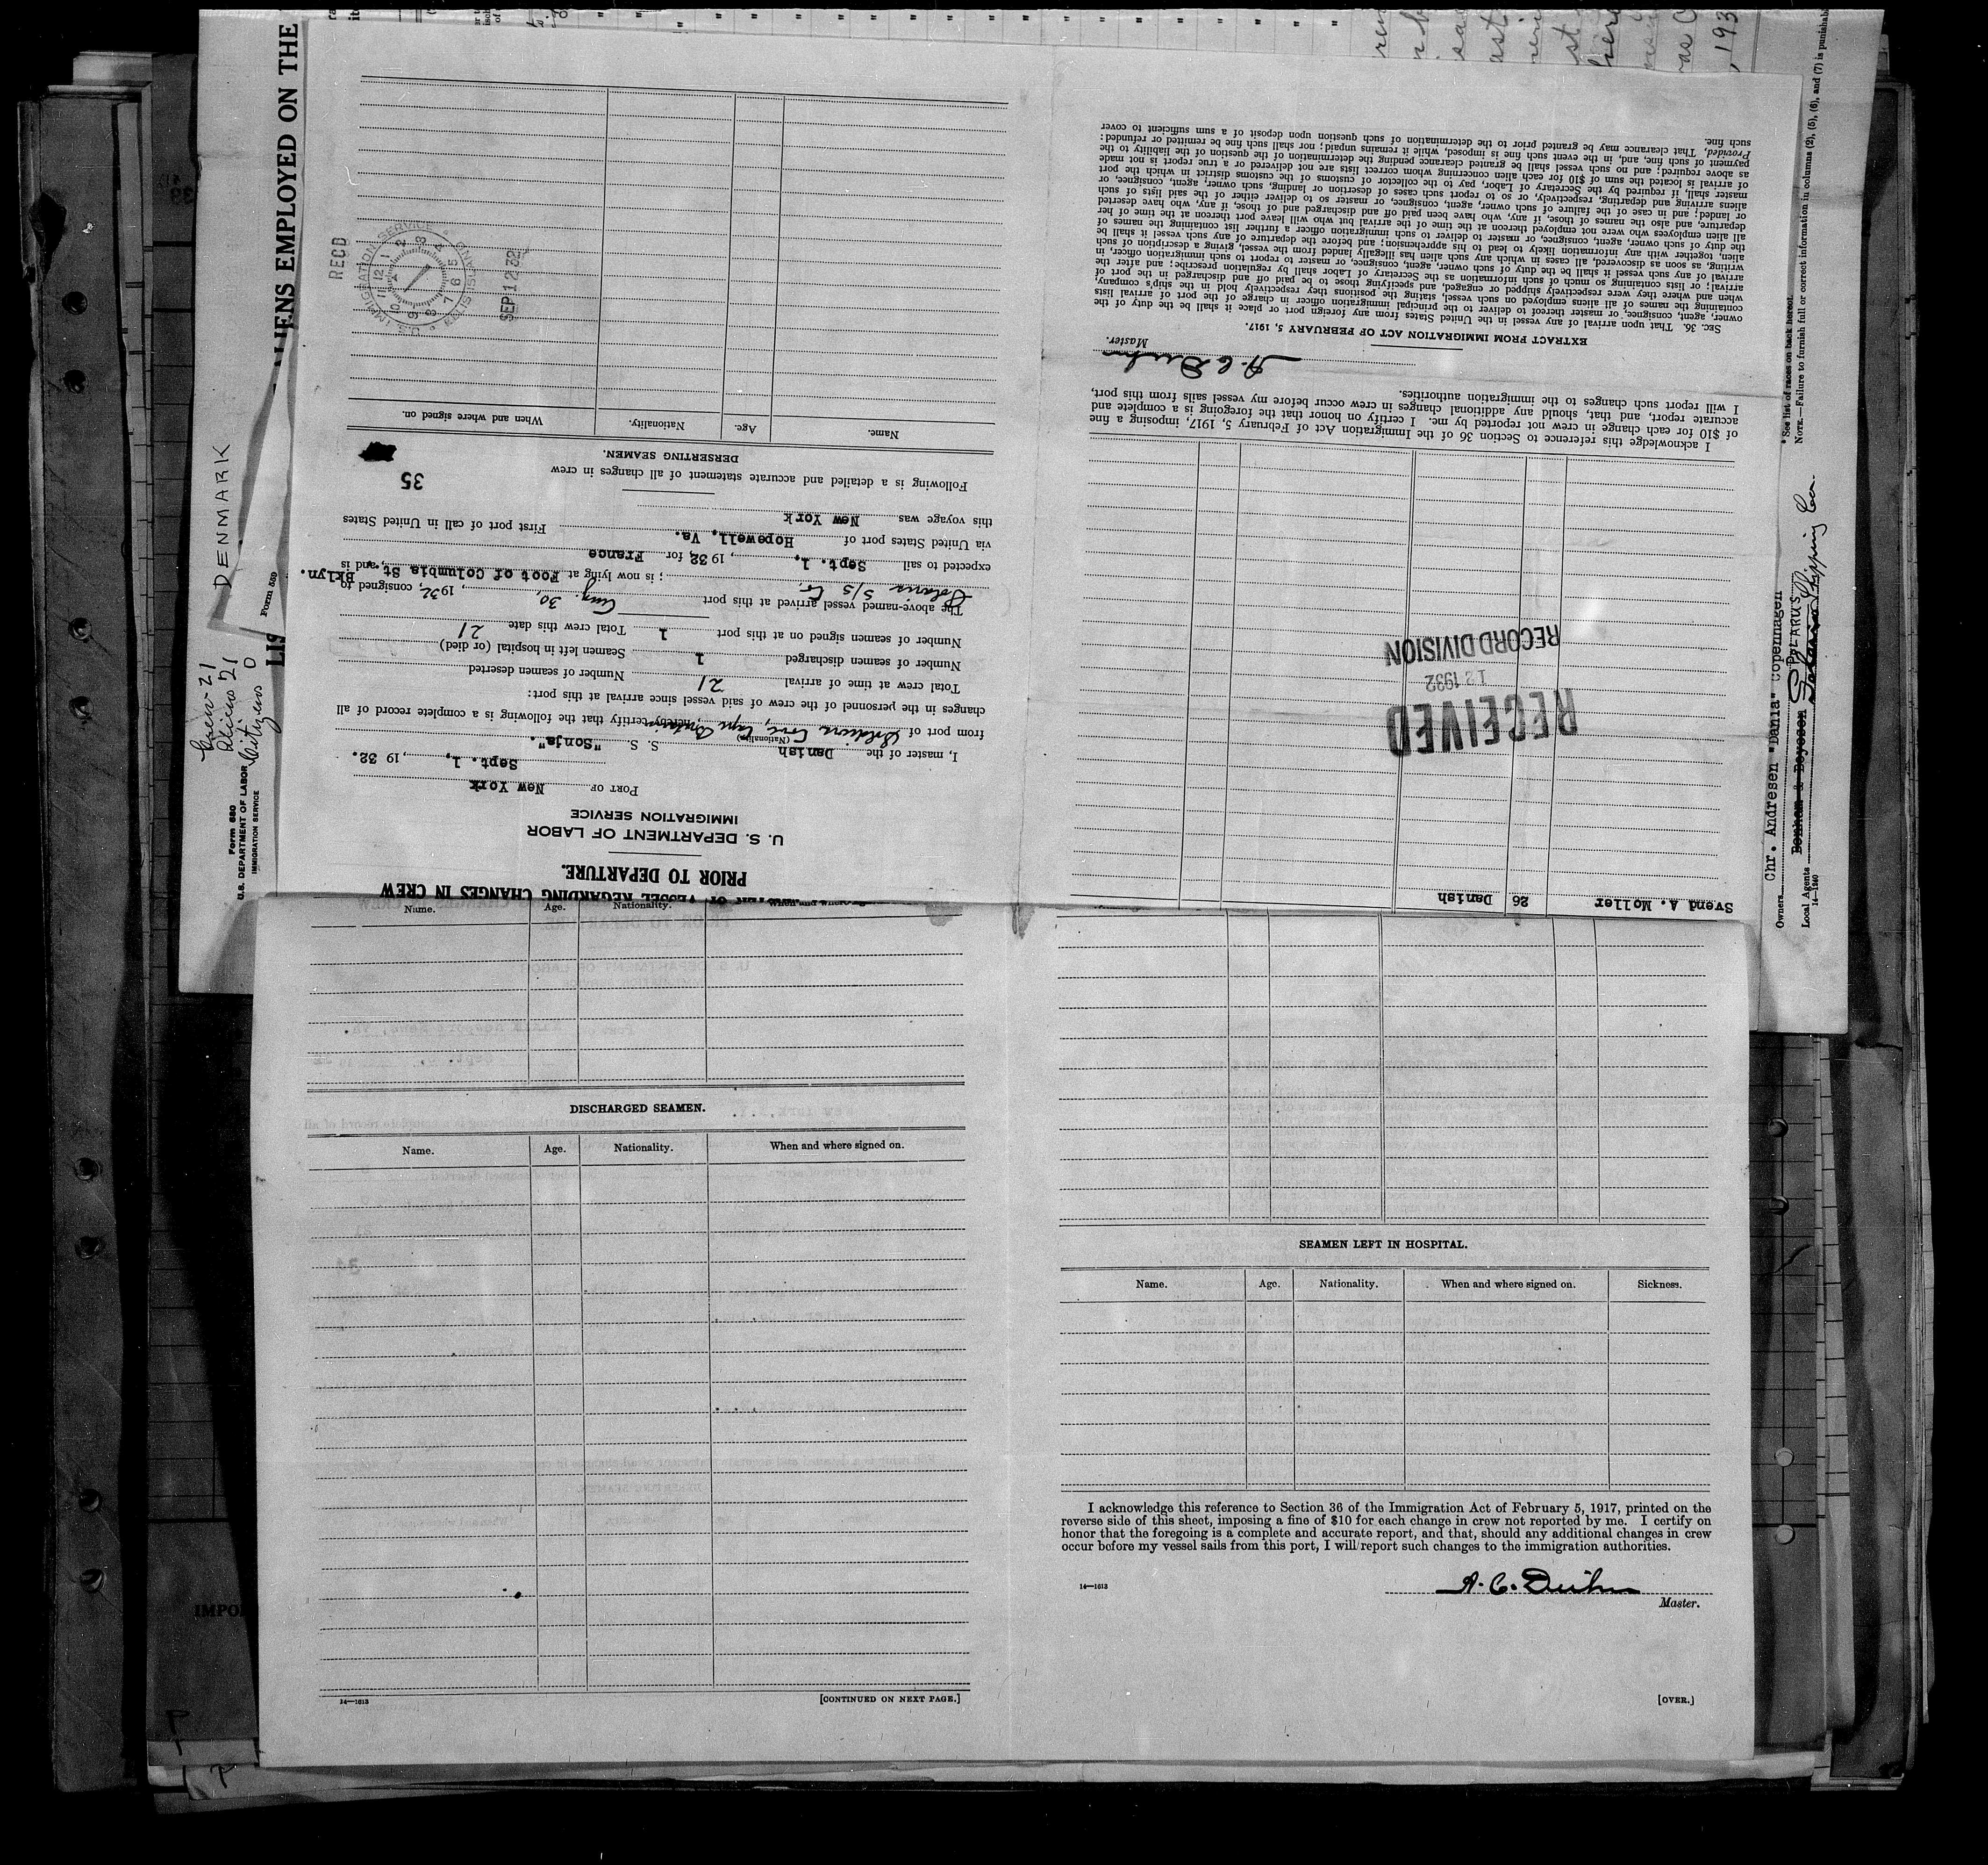 LIENS EMPLOYED ON THE
DENMARK
Form 550
Crew- 21
Aliens 21
Citizens 0
LIS
Form 680
U.S. DEPARTMENT OF LABOR
IMMIGRATION SERVICE
OF VESSEL REGARDING CHANGES IN CREW
PRIOR TO DEPARTURE.
U. S. DEPARTMENT OF LABOR
IMMIGRATION SERVICE
PORT OF New York
Sept. 1, , 19 32.
I, master of the Danish S. S. "Sonja".
(Nationality)
from port of , hereby certify that the following is a complete record of all
changes in the personnel of the crew of said vessel since arrival at this port:
Total crew at time of arrival 21 Number of seamen deserted
Number of seamen discharged 1 Seamen left in hospital (or died)
Number of seamen signed on at this port 1 Total crew this date 21
The above-named vessel arrived at this port Aug. 30, , 1932, consigned to
Solaris S/S Co. ; is now lying at Foot of Columbia St. Bklyn. , and is
expected to sail Sept. 1, , 1932, for France
via United States port of Hopewell, Va. First port of call in United States
this voyage was New York
Following is a detailed and accurate statement of all changes in crew
35
DERSERTING SEAMEN.
Name. Age. Nationality. When and where signed on.
RECD
U.S. IMMIGRATION SERVICE
ELLIS ISLAND
SEP 12 32
Svend A. Moller 26 Danish
RECEIVED
12 1932
RECORD DIVISION
I acknowledge this reference to Section 36 of the Immigration Act of February 5, 1917, imposing a fine
of $10 for each change in crew not reported by me. I certify on honor that the foregoing is a complete and
accurate report, and that, should any additional changes in crew occur before my vessel sails from this port,
I will report such changes to the immigration authorities.
Master.
EXTRACT FROM IMMIGRATION ACT OF FEBRUARY 5, 1917.
SEC. 36. That upon arrival of any vessel in the United States from any foreign port or place it shall be the duty of the
owner, agent, consignee, or master thereof to deliver to the principal immigration officer in charge of the port of arrival lists
containing the names of all aliens employed on such vessel, stating the positions they respectively hold in the ship's company,
when and where they were respectively shipped or engaged, and specifying those to be paid off and discharged in the port of
arrival; or lists containing so much of such information as the Secretary of Labor shall by regulation prescribe; and after the
arrival of any such vessel it shall be the duty of such owner, agent, consignee, or master to report to such immigration officer, in
writing, as soon as discovered, all cases in which any such alien has illegally landed from the vessel, giving a description of such
alien, together with any information likely to lead to his apprehension; and before the departure of any such vessel it shall be
the duty of such owner, agent, consignee, or master to deliver to such immigration officer a further list containing the names of
all alien employees who were not employed thereon at the time of the arrival but who will leave port thereon at the time of her
departure, and also the names of those, if any, who have been paid off and discharged and of those, if any, who have deserted
or landed; and in case of the failure of such owner, agent, consignee, or master so to deliver either of the said lists of such
aliens arriving and departing, respectively, or so to report such cases of desertion or landing, such owner, agent, consignee, or
master shall, if required by the Secretary of Labor, pay to the collector of customs of the customs district in which the port
of arrival is located the sum of $10 for each alien concerning whom correct lists are not delivered or a true report is not made
as above required; and no such vessel shall be granted clearance pending the determination of the question of the liability to the
payment of such fine, and, in the event such fine is imposed, while it remains unpaid; nor shall such fine be remitted or refunded:
Provided, That clearance may be granted prior to the determination of such question upon deposit of a sum sufficient to cover
such fine.
* See list of races on back hereof.
NOTE.—Failure to furnish full or correct information in columns (2), (5), (6), and (7) is punishab
Owners Chr. Andresen "Dania" Copenhagen
Local Agents Benham & Boyesen
Shipping Co.
14—1240
Name. Age. Nationality.
DISCHARGED SEAMEN.
Name. Age. Nationality. When and where signed on.
14—1613
[CONTINUED ON NEXT PAGE.]
SEAMEN LEFT IN HOSPITAL.
Name. Age. Nationality. When and where signed on. Sickness.
I acknowledge this reference to Section 36 of the Immigration Act of February 5, 1917, printed on the
reverse side of this sheet, imposing a fine of $10 for each change in crew not reported by me. I certify on
honor that the foregoing is a complete and accurate report, and that, should any additional changes in crew
occur before my vessel sails from this port, I will report such changes to the immigration authorities.
14—1613
Master.
[OVER.]
IMPO